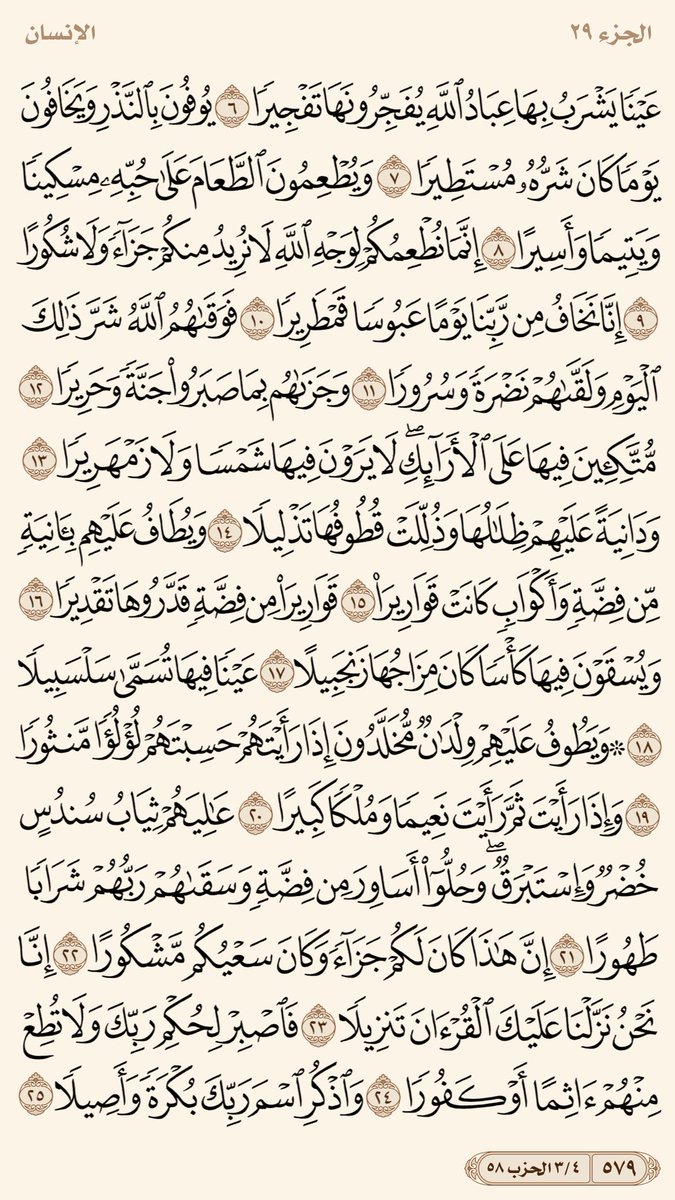 الجزء ٢٩ الإنسان
عَيْنٗا يَشۡرَبُ بِهَا عِبَادُ ٱللَّهِ يُفَجِّرُونَهَا تَفۡجِيرٗا ٦ يُوفُونَ بِٱلنَّذۡرِ وَيَخَافُونَ
يَوۡمٗا كَانَ شَرُّهُۥ مُسۡتَطِيرٗا ٧ وَيُطۡعِمُونَ ٱلطَّعَامَ عَلَىٰ حُبِّهِۦ مِسۡكِينٗا
وَيَتِيمٗا وَأَسِيرًا ٨ إِنَّمَا نُطۡعِمُكُمۡ لِوَجۡهِ ٱللَّهِ لَا نُرِيدُ مِنكُمۡ جَزَآءٗ وَلَا شُكُورًا
٩ إِنَّا نَخَافُ مِن رَّبِّنَا يَوۡمًا عَبُوسٗا قَمۡطَرِيرٗا ١٠ فَوَقَىٰهُمُ ٱللَّهُ شَرَّ ذَٰلِكَ
ٱلۡيَوۡمِ وَلَقَّىٰهُمۡ نَضۡرَةٗ وَسُرُورٗا ١١ وَجَزَىٰهُم بِمَا صَبَرُواْ جَنَّةٗ وَحَرِيرٗا ١٢
مُّتَّكِـِٔينَ فِيهَا عَلَى ٱلۡأَرَآئِكِۖ لَا يَرَوۡنَ فِيهَا شَمۡسٗا وَلَا زَمۡهَرِيرٗا ١٣
وَدَانِيَةً عَلَيۡهِمۡ ظِلَٰلُهَا وَذُلِّلَتۡ قُطُوفُهَا تَذۡلِيلٗا ١٤ وَيُطَافُ عَلَيۡهِم بِـَٔانِيَةٖ
مِّن فِضَّةٖ وَأَكۡوَابٖ كَانَتۡ قَوَارِيرَا۠ ١٥ قَوَارِيرَاْ مِن فِضَّةٖ قَدَّرُوهَا تَقۡدِيرٗا ١٦
وَيُسۡقَوۡنَ فِيهَا كَأۡسٗا كَانَ مِزَاجُهَا زَنجَبِيلًا ١٧ عَيۡنٗا فِيهَا تُسَمَّىٰ سَلۡسَبِيلٗا
١٨ ۞ وَيَطُوفُ عَلَيۡهِمۡ وِلۡدَٰنٞ مُّخَلَّدُونَ إِذَا رَأَيۡتَهُمۡ حَسِبۡتَهُمۡ لُؤۡلُؤٗا مَّنثُورٗا
١٩ وَإِذَا رَأَيۡتَ ثَمَّ رَأَيۡتَ نَعِيمٗا وَمُلۡكٗا كَبِيرًا ٢٠ عَٰلِيَهُمۡ ثِيَابُ سُندُسٍ
خُضۡرٞ وَإِسۡتَبۡرَقٞۖ وَحُلُّوٓاْ أَسَاوِرَ مِن فِضَّةٖ وَسَقَىٰهُمۡ رَبُّهُمۡ شَرَابٗا
طَهُورًا ٢١ إِنَّ هَٰذَا كَانَ لَكُمۡ جَزَآءٗ وَكَانَ سَعۡيُكُم مَّشۡكُورًا ٢٢ إِنَّا
نَحۡنُ نَزَّلۡنَا عَلَيۡكَ ٱلۡقُرۡءَانَ تَنزِيلٗا ٢٣ فَٱصۡبِرۡ لِحُكۡمِ رَبِّكَ وَلَا تُطِعۡ
مِنۡهُمۡ ءَاثِمًا أَوۡ كَفُورٗا ٢٤ وَٱذۡكُرِ ٱسۡمَ رَبِّكَ بُكۡرَةٗ وَأَصِيلٗا ٢٥
٥٧٩ ٣/٤ الحزب ٥٨